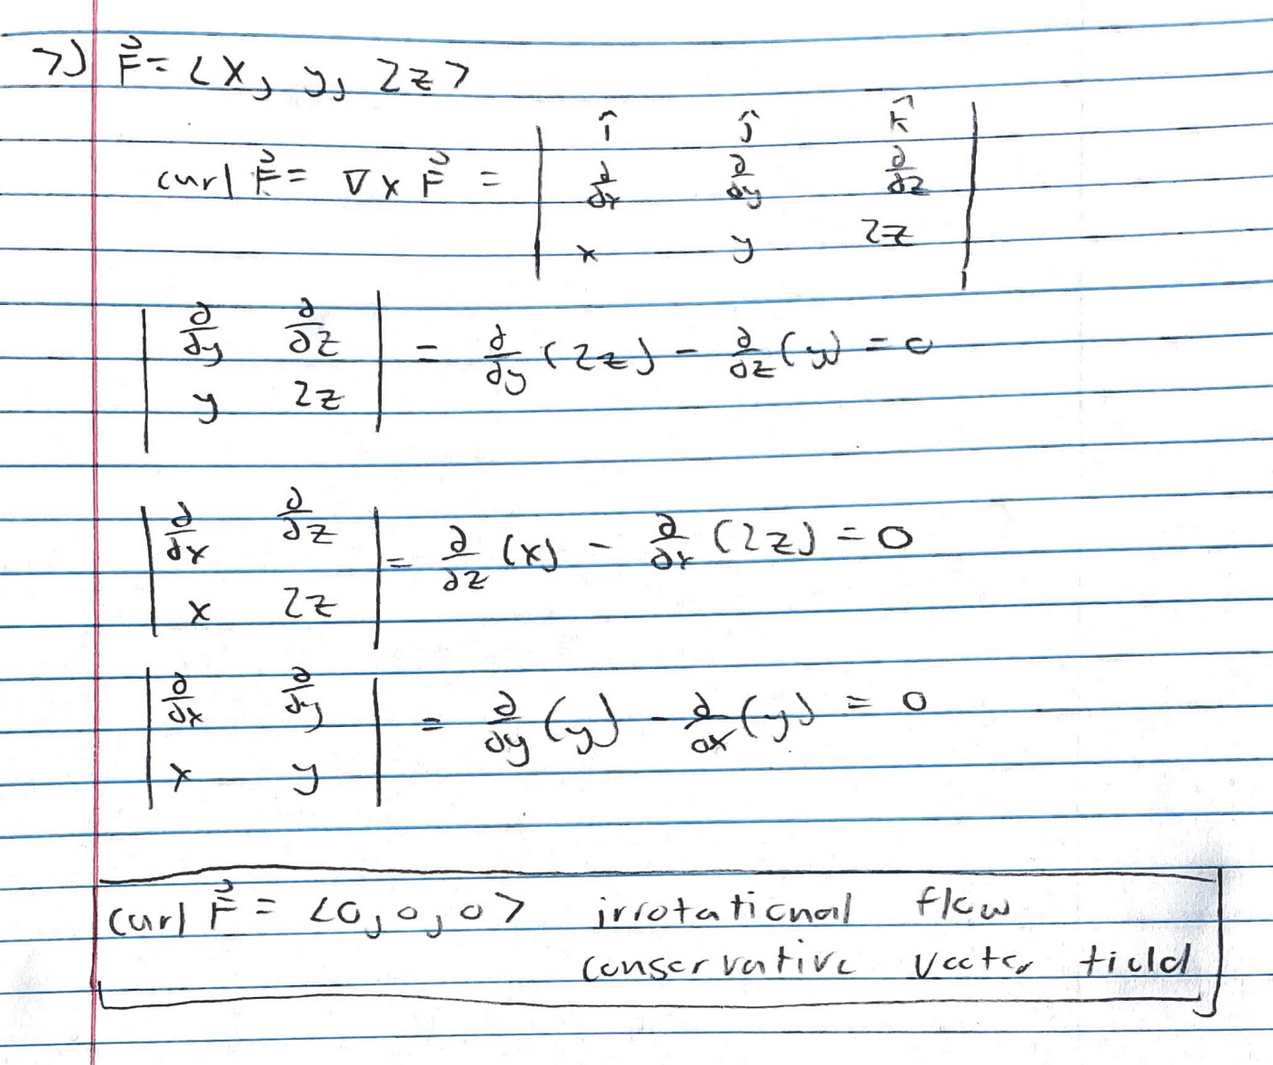 7) F⃗ = <x, y, 2z>
curl F⃗ = ∇ × F⃗ = | î ĵ k̂ |
| ∂/∂x ∂/∂y ∂/∂z |
| x y 2z |
| ∂/∂y ∂/∂z | = ∂/∂y (2z) − ∂/∂z (y) = 0
| y 2z |
| ∂/∂x ∂/∂z | = ∂/∂z (x) − ∂/∂x (2z) = 0
| x 2z |
| ∂/∂x ∂/∂y | = ∂/∂y (y) − ∂/∂x (y) = 0
| x y |
curl F⃗ = <0, 0, 0> irrotational flow
conservative vector field